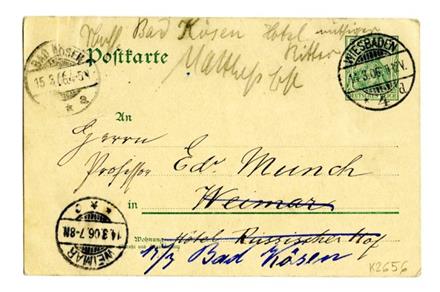 Bad Kösen Hotel
Ritter
Postkarte
BAD KÖSEN
15.3.06
WIESBADEN
14.3.06
An
Herrn
Professor Edv. Munch
in Weimar
Wohnung
Hôtel Russischer Hof
Bad Kösen
WEIMAR
14.3.06.7-8N.
K2656